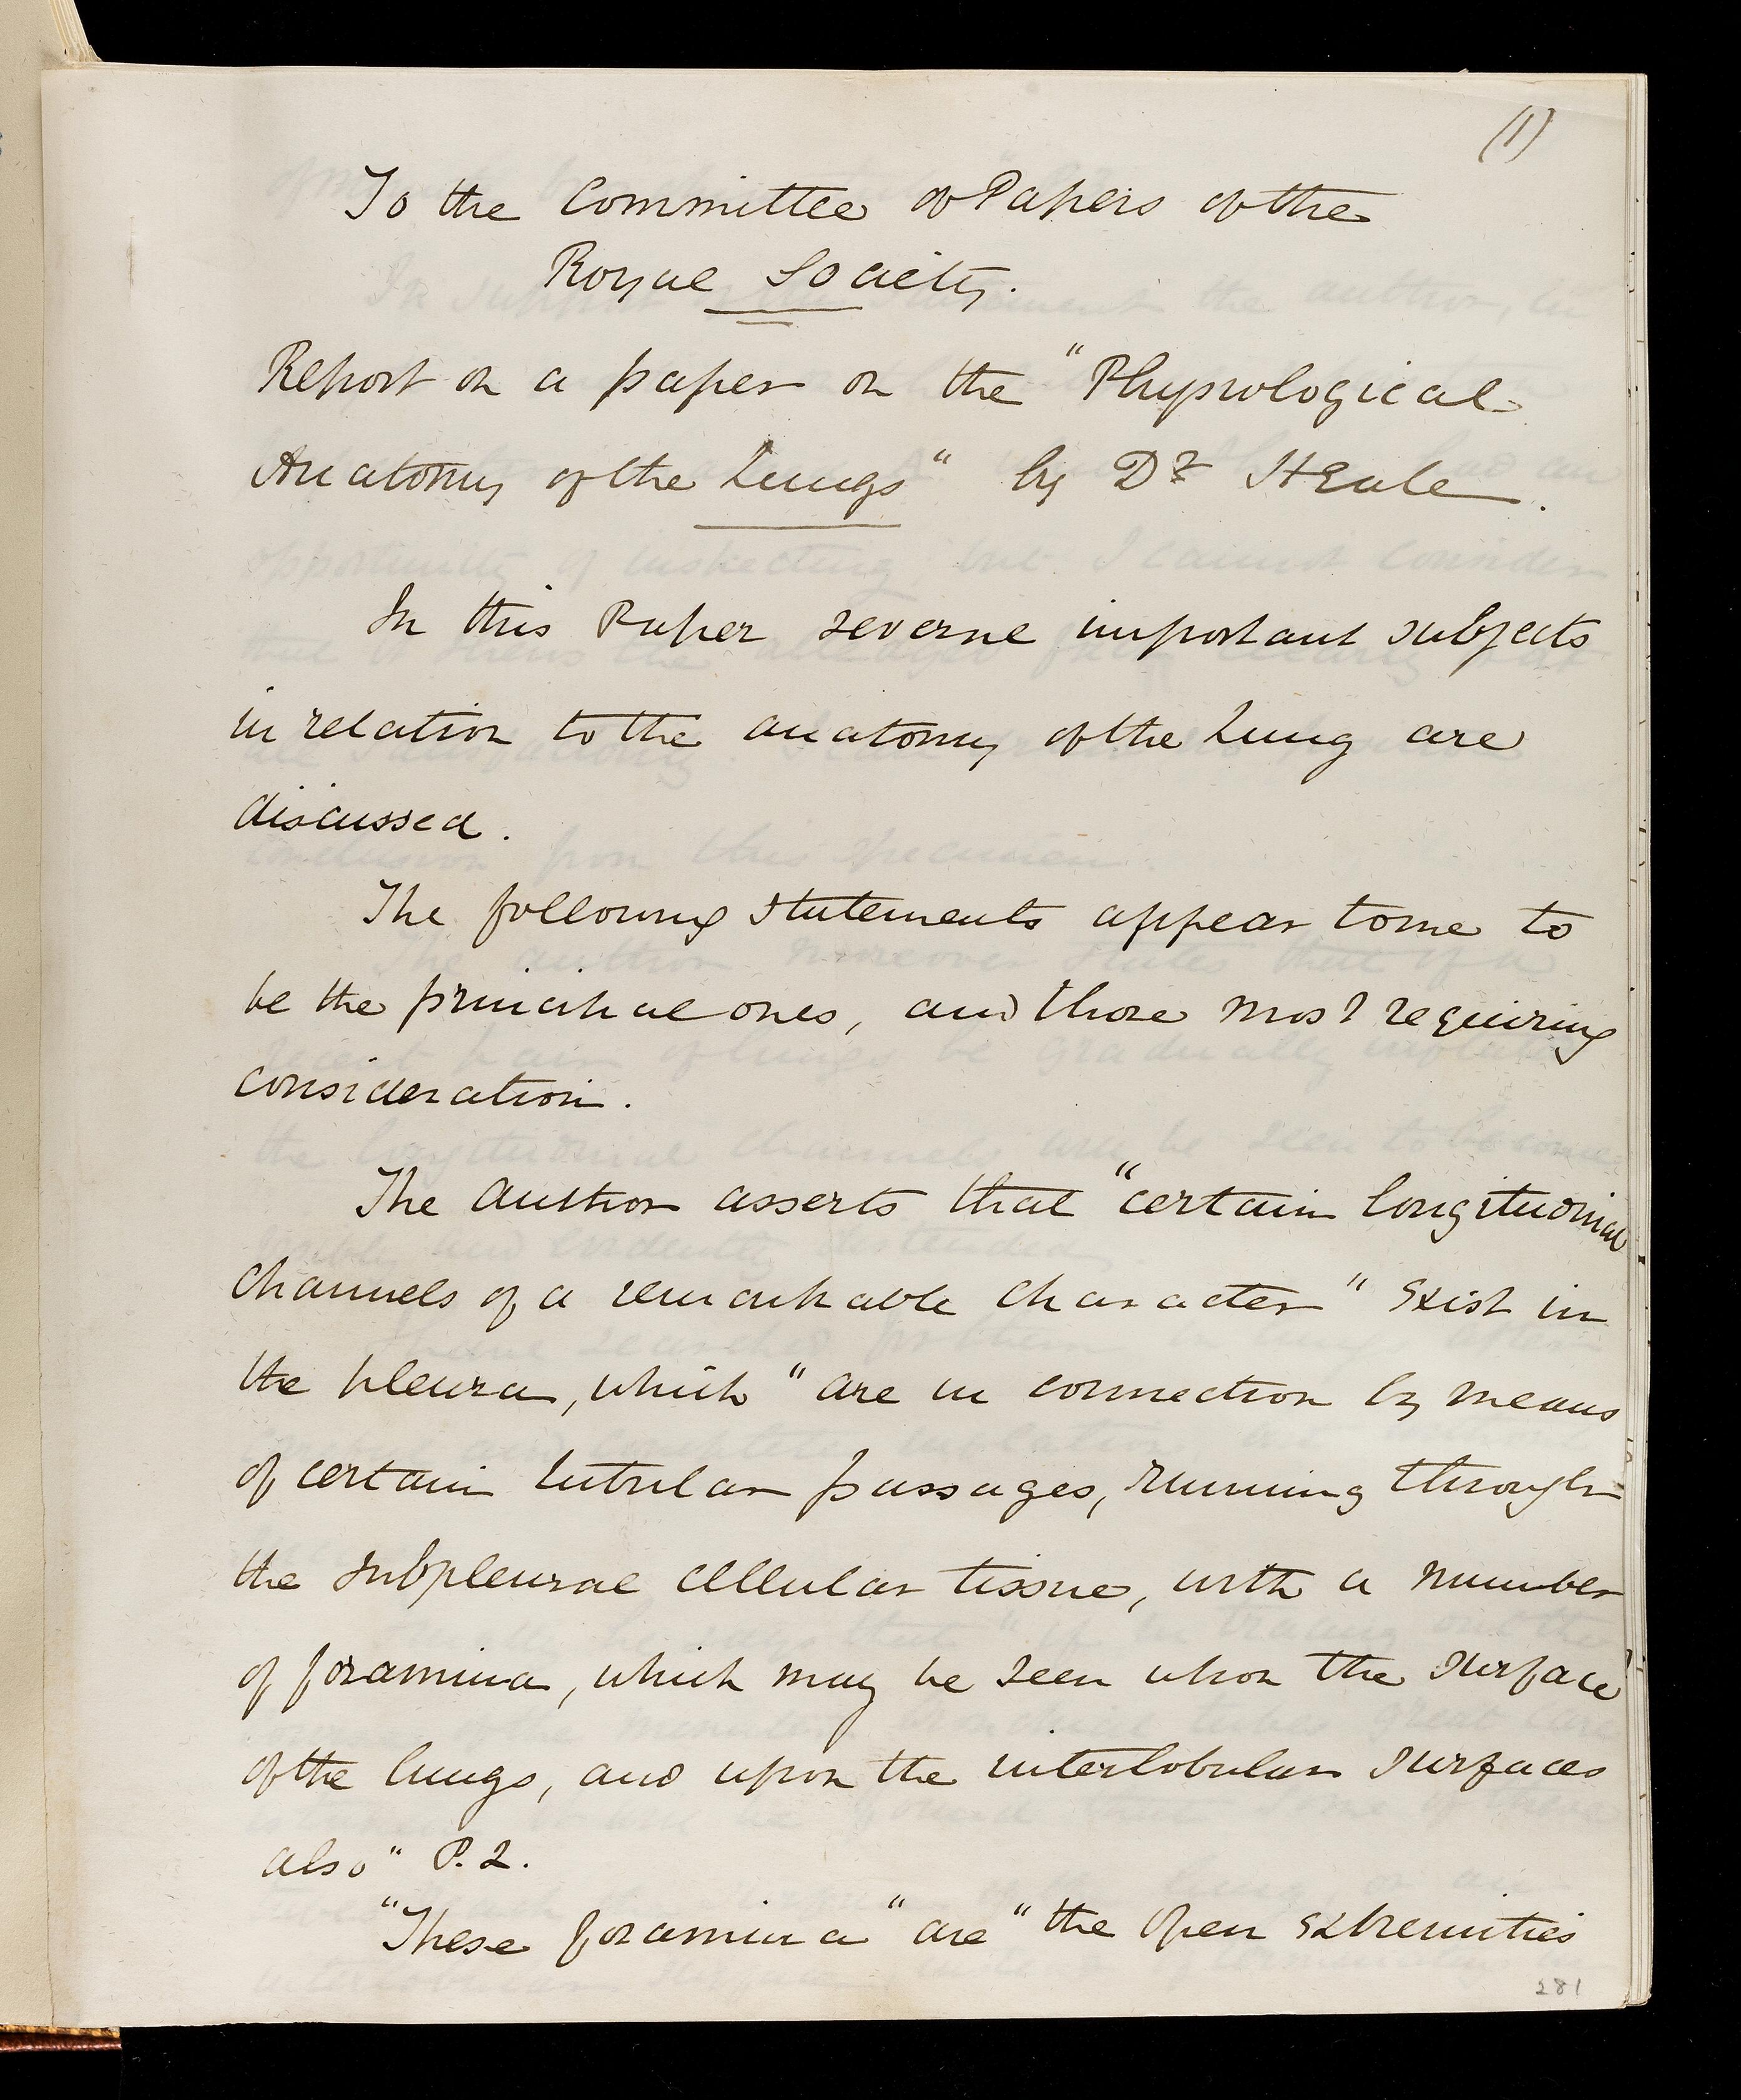 (1)
To the Committee of Papers of the
Royal Society.
Report on a paper on the "Physiological
Anatomy of the Lungs" by Dr. Heale.
In this Paper several important subjects
in relation to the anatomy of the Lung are
discussed.
The following statements appear to me to
be the principal ones, and those most requiring
consideration.
The author asserts that "certain longitudinal
channels of a remarkable character" exist in
the pleura, which "are in connection by means
of certain tubular passages, running through
the subpleural cellular tissue, with a number
of foramina, which may be seen upon the surface
of the lungs, and upon the interlobular surfaces
also" P. 2.
"These foramina" are "the open extremities
281